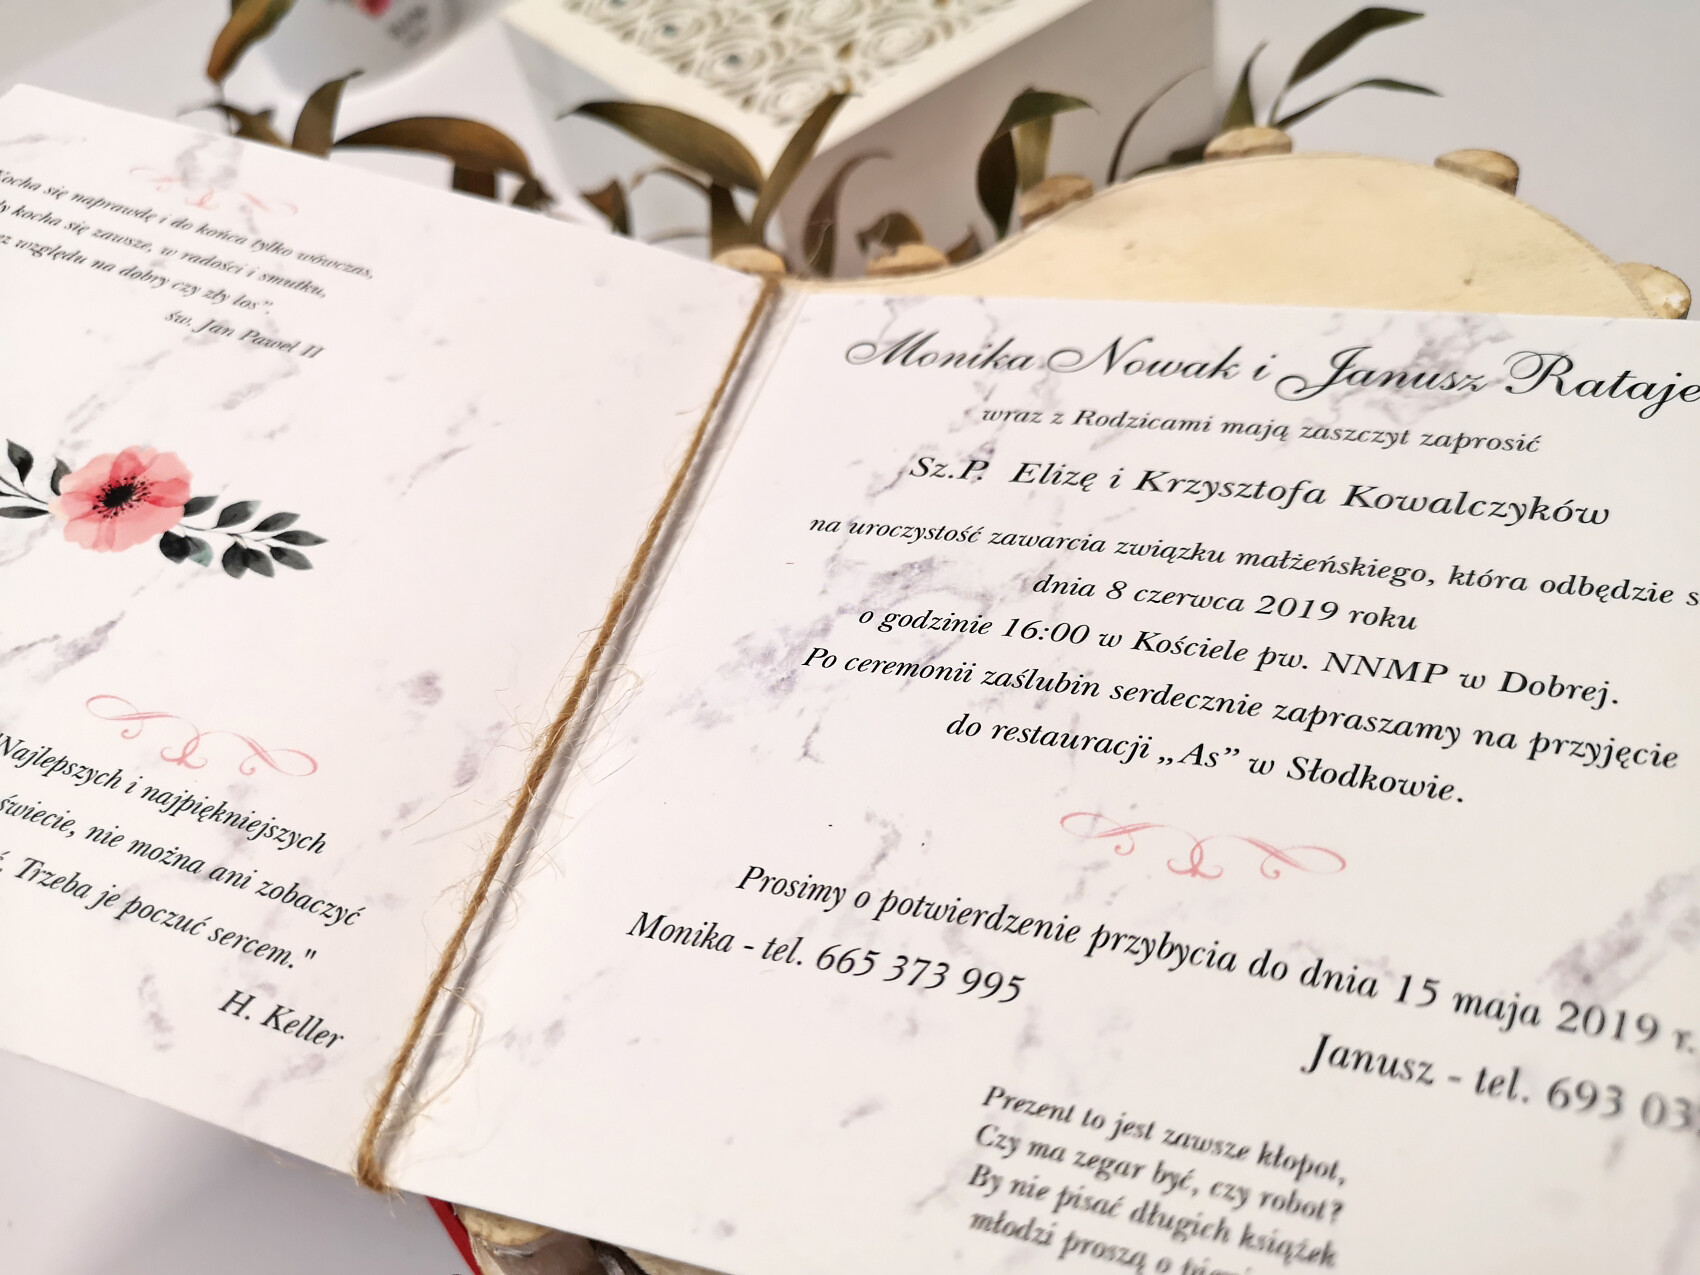 kocha się naprawdę i do końca tylko wówczas,
kocha się zawsze, w radości i smutku,
względu na dobry czy zły los”.
św. Jan Paweł II
Najlepszych i najpiękniejszych
świecie, nie można ani zobaczyć
Trzeba je poczuć sercem."
H. Keller
Monika Nowak i Janusz Rataje
wraz z Rodzicami mają zaszczyt zaprosić
Sz.P. Elizę i Krzysztofa Kowalczyków
na uroczystość zawarcia związku małżeńskiego, która odbędzie s
dnia 8 czerwca 2019 roku
o godzinie 16:00 w Kościele pw. NNMP w Dobrej.
Po ceremonii zaślubin serdecznie zapraszamy na przyjęcie
do restauracji „As” w Słodkowie.
Prosimy o potwierdzenie przybycia do dnia 15 maja 2019 r.
Monika - tel. 665 373 995
Janusz - tel. 693 03
Prezent to jest zawsze kłopot,
Czy ma zegar być, czy robot?
By nie pisać długich książek
młodzi proszą o